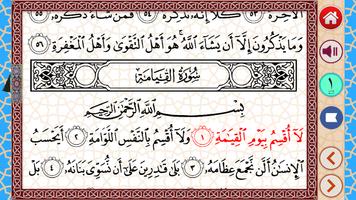 ٱلْأَخِرَةَ ٥٣ كَلَّآ إِنَّهُۥ تَذْكِرَةٌ ٥٤ فَمَن شَآءَ ذَكَرَهُۥ ٥٥
وَمَا يَذْكُرُونَ إِلَّآ أَن يَشَآءَ ٱللَّهُ ۚ هُوَ أَهْلُ ٱلتَّقْوَىٰ وَأَهْلُ ٱلْمَغْفِرَةِ ٥٦
سُورَةُ القِيَامَةِ
بِسْمِ ٱللَّهِ ٱلرَّحْمَٰنِ ٱلرَّحِيمِ
لَآ أُقْسِمُ بِيَوْمِ ٱلْقِيَٰمَةِ ١ وَلَآ أُقْسِمُ بِٱلنَّفْسِ ٱللَّوَّامَةِ ٢ أَيَحْسَبُ
ٱلْإِنسَٰنُ أَلَّن نَّجْمَعَ عِظَامَهُۥ ٣ بَلَىٰ قَٰدِرِينَ عَلَىٰٓ أَن نُّسَوِّىَ بَنَانَهُۥ ٤ بَلْ
١